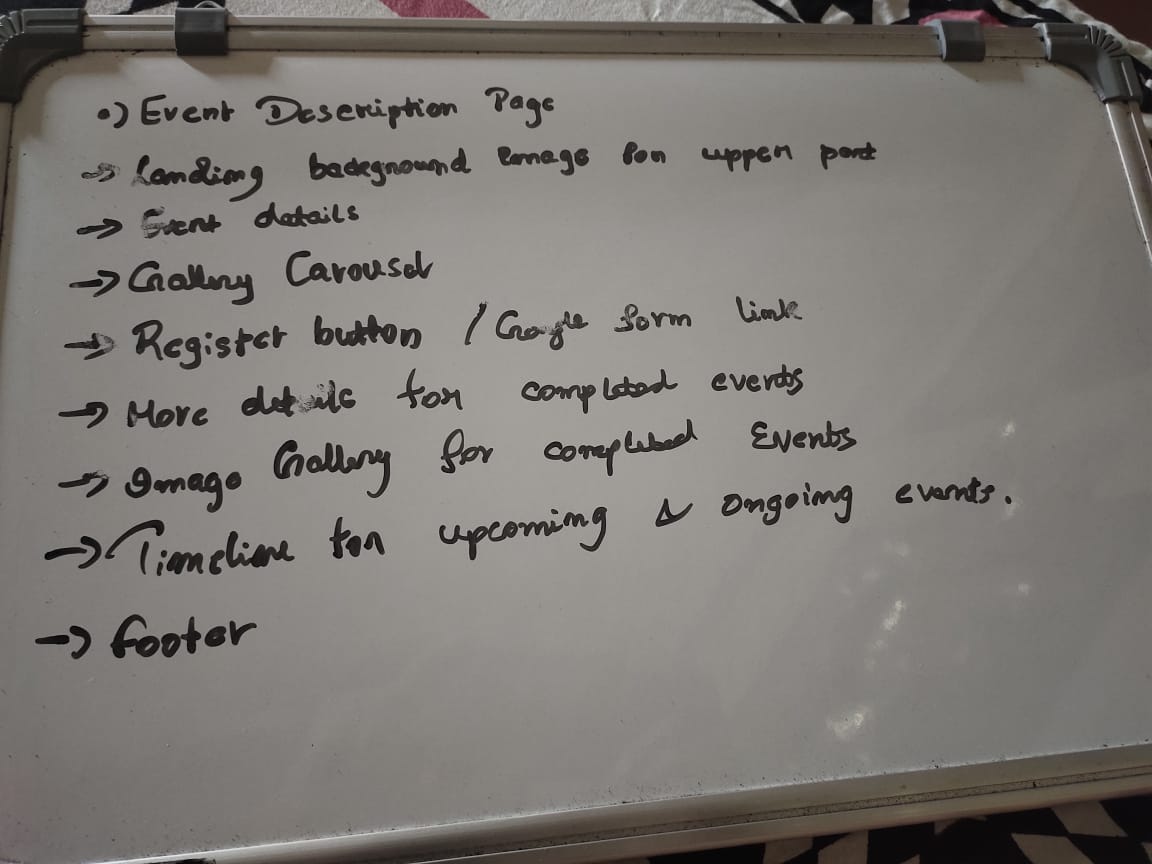 •) Event Description Page
→ Landing background Image for upper part
→ Event details
→ Gallery Carousel
→ Register button / Google form link
→ More details for completed events
→ Image Gallery for completed Events
→ Timeline for upcoming & ongoing events.
→ footer